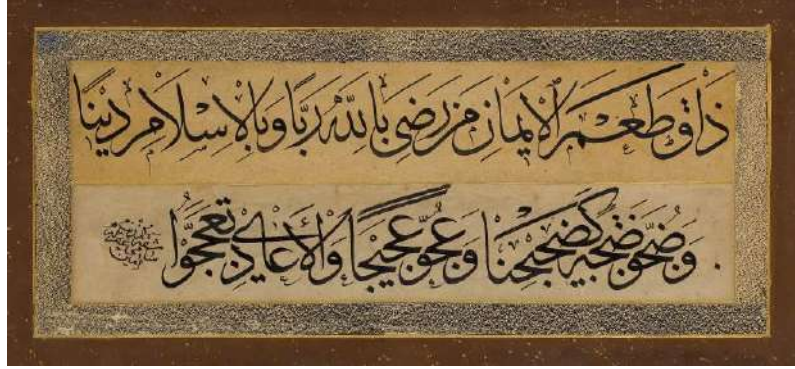 ذَاقَ طَعْمَ الْإِيمَانِ مَنْ رَضِيَ بِاللّٰهِ رَبًّا وَبِالْإِسْلَامِ دِينًا
وَضُجُّو كَضَجِيجِنَا وَعُجُّو عَجِيجًا وَالْأَعَادِي